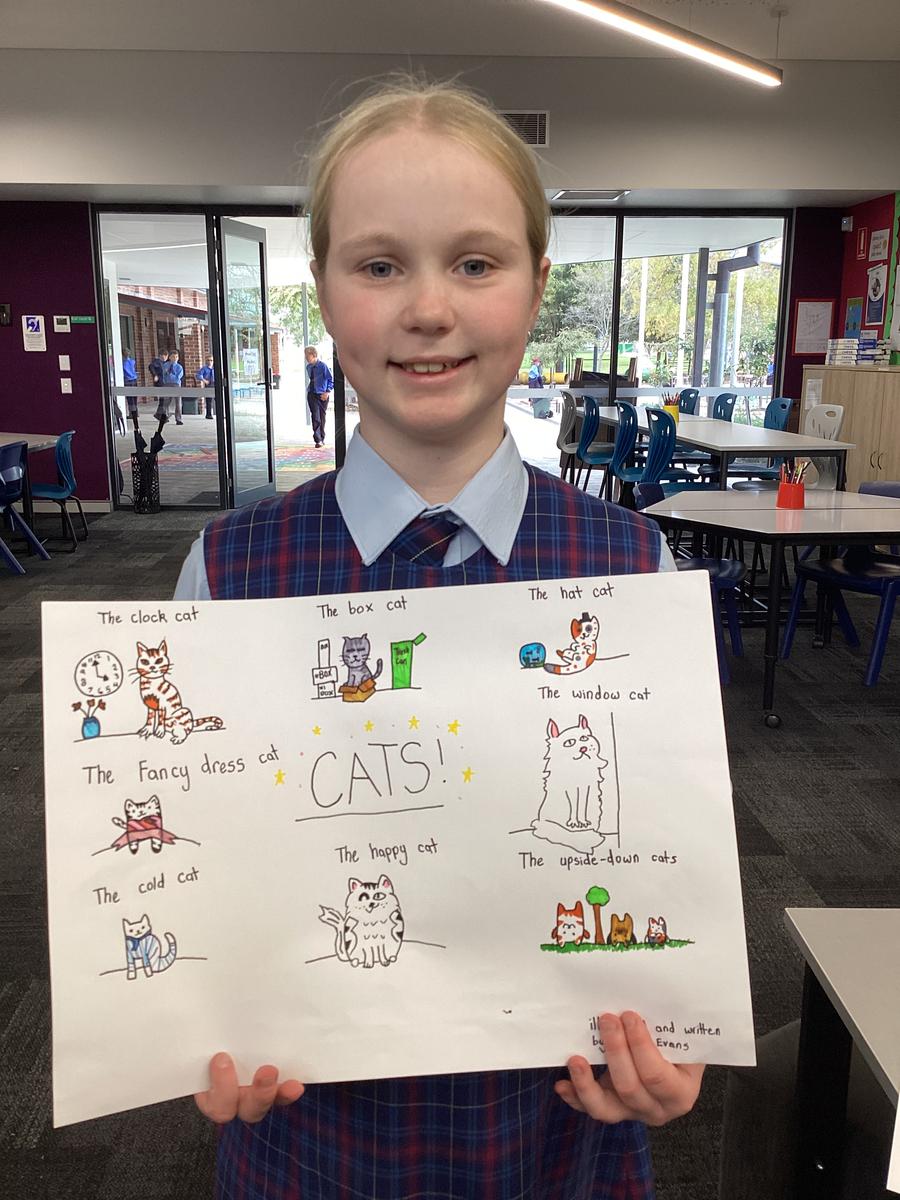 The clock cat
The box cat
The hat cat
The window cat
BOX
BOX
Trash
Can
The Fancy dress cat
CATS!
The cold cat
The happy cat
The upside-down cats
and written
Evans